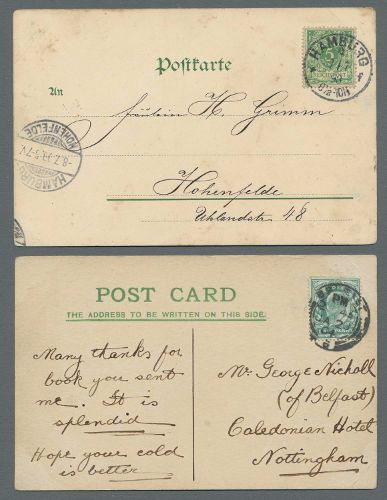 Postkarte
HAMBURG
An
Fräulein H. Grimm
HOHENFELDE
HAMBURG
Hohenfelde
Uhlandstr. 48
POST CARD
THE ADDRESS TO BE WRITTEN ON THIS SIDE.
Many thanks for
book you sent
me. It is
splendid
Hope your cold
is better
Mr George Nicholl
(of Belfast)
Caledonian Hotel
Nottingham